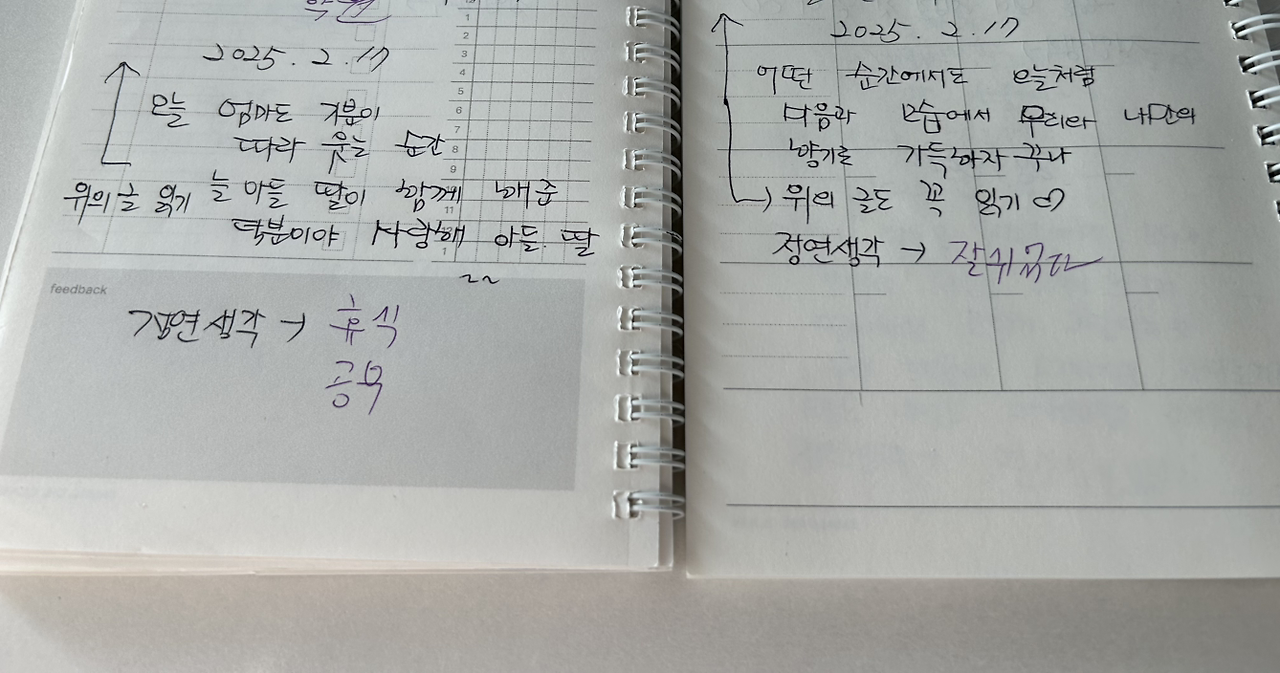 2025. 2. 17
오늘 엄마도 기분이
따라 웃는 순간
위의 글 읽기 늘 아들 딸이 함께 해준
덕분이야 사랑해 아들 딸
~~
feedback
정연생각 → 휴식
공부
1
2
3
4
5
6
7
8
9
11
1
2025. 2. 17
어떤 순간에서도 오늘처럼
마음과 모습에서 우리라 나만의
향기로 가득하자 꾸나
→ 위의 글도 꼭 읽기 ♡
정연생각 → 잘쉬고